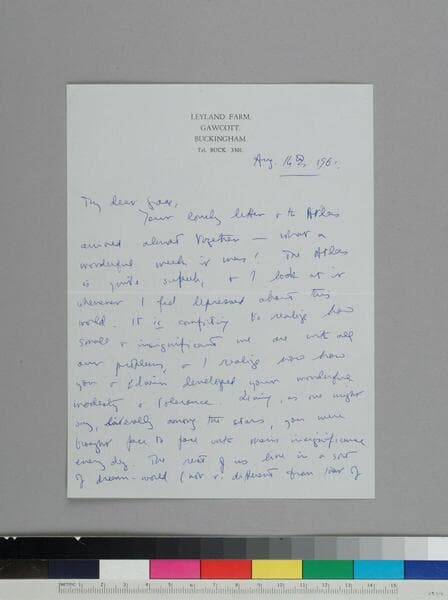 LEYLAND FARM,
GAWCOTT,
BUCKINGHAM.
Tel. BUCK. 3301.
Aug. 16th, 196
My dear
Your lovely letter & the Atlas
arrived almost together — what a
wonderful week it was! The Atlas
is quite superb, & I look at it
whenever I feel depressed about this
world. It is comforting to realize how
small & insignificant we are with all
our problems, & I realize now how
you & developed your wonderful
modesty & tolerance. Living, as one might
say, literally among the stars, you were
brought face to face with man's insignificance
every day. The rest of us live in a sort
of dream-world (not so different from that of
METRIC 1 2 3 4 5 6 7 8 9 10 11 12 13 14 15